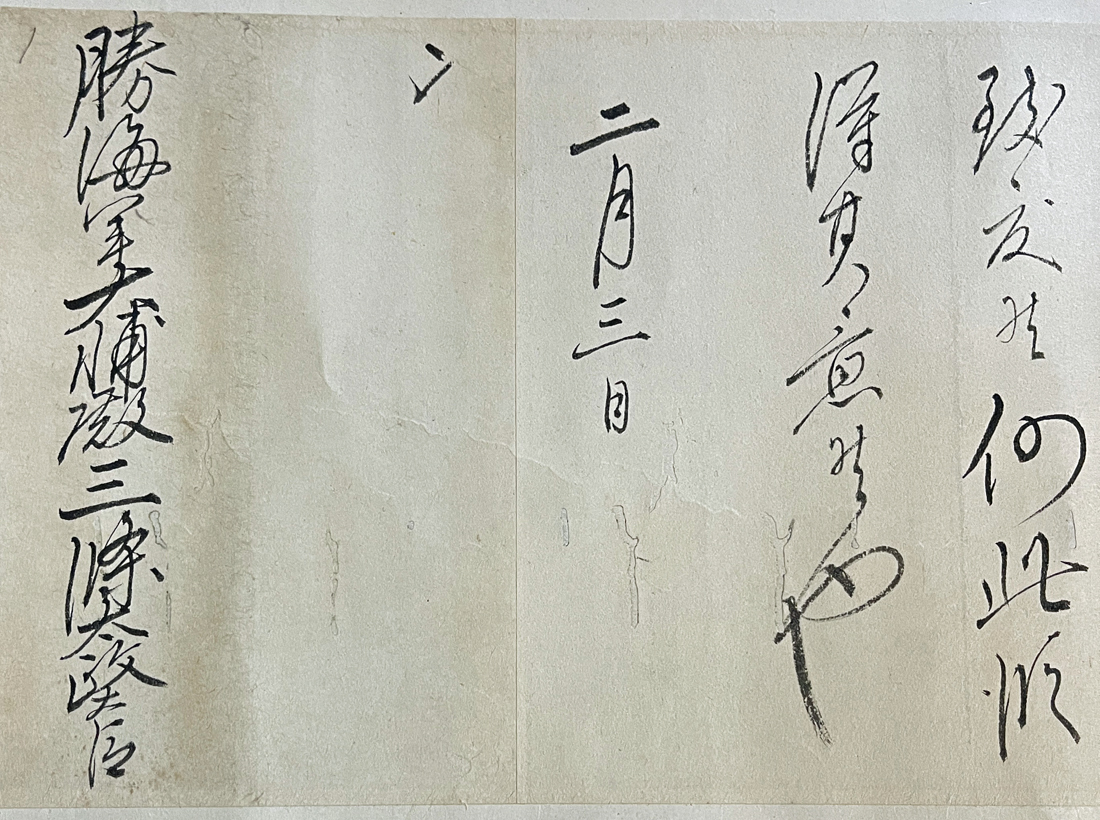 致度候仍此段
得貴意候也
二月三日
勝海軍大輔殿三條太政大臣